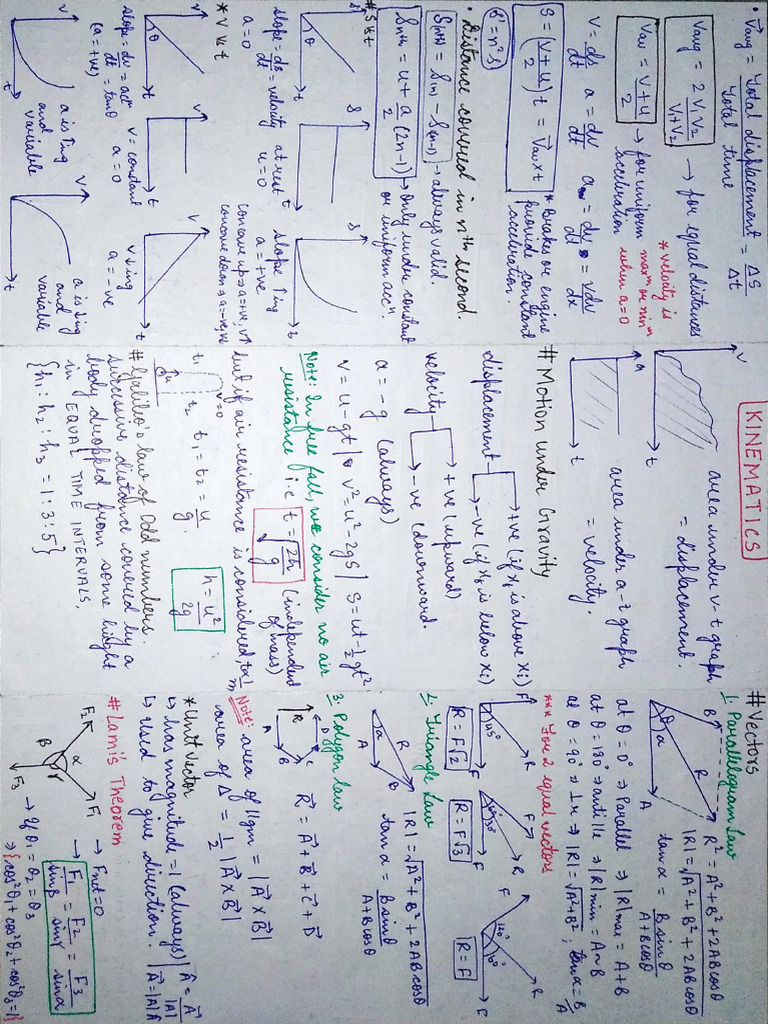 KINEMATICS
• V⃗avg = Total displacement / Total time = Δs / Δt
Vavg = 2 V1 V2 / V1+V2 → for equal distances
Vav = V+u / 2 → for uniform acceleration
* velocity is maxm or minm when a=0
v = ds/dt a = dv/dt a = dv/dt = vdv/dx
S = (V+u / 2) t = V⃗av x t
* Brakes or engine provide constant acceleration.
S' = n²s
• Distance covered in nth second.
S(nth) = S(n) - S(n-1) → always valid.
Snth = u + a/2 (2n-1) → only under constant or uniform accn.
# S v t
s
θ
t
slope = ds/dt = velocity
a=0
s
t
at rest
u=0
s
t
slope ↑ing
a = +ve
concave up ⇒ a=+ve, v↑
concave down ⇒ a=-ve, v↓
* V v t
v
θ
t
slope = dv/dt = accn = tanθ
(a = +ve)
v
t
v = constant
a = 0
v
t
v ↓ing
a = -ve
v
t
a is ↑ing and variable
v
t
a is ↓ing and variable
v
t
area under v-t graph
= displacement.
a
t
area under a-t graph
= velocity.
# Motion under Gravity
displacement
+ve (if xf is above xi)
-ve (if xf is below xi)
velocity
+ve (upward)
-ve (downward.
a = -g (always)
v = u - gt | v² = u² - 2gs | S = ut - ½gt²
Note: In free fall, we consider no air
resistance i.e t = √2h/g (independent of mass)
but if air resistance is considered, t∝ 1/m
t1 t2 v=0 u
t1 = t2 = u/g.
h = u²/2g
# Galileo's law of Odd numbers.
successive distance covered by a
body dropped from some height
in EQUAL TIME INTERVALS,
{h1 : h2 : h3 = 1 : 3 : 5}
#Vectors
1. Parallelogram Law
B R A θ α
R² = A² + B² + 2AB cosθ
|R| = √A² + B² + 2AB cosθ
tan α = B sinθ / A+B cosθ
at θ = 0° ⇒ Parallel ⇒ |R|max = A+B
at θ = 180° ⇒ anti ll ⇒ |R|min = A~B
at θ = 90° ⇒ ⊥r ⇒ |R| = √A²+B² ; tan α = B/A
*** For 2 equal vectors
F R F 45°
R = F√2
F R F 30°
R = F√3
F R F 120° 60°
R = F
2. Triangle Law
R B A α
|R| = √A² + B² + 2AB cosθ
tan α = B sinθ / A+B cosθ
3. Polygon Law
R A B C D
R⃗ = A⃗ + B⃗ + C⃗ + D⃗
Note: area of llgm = |A⃗ x B⃗|
area of Δ = ½ |A⃗ x B⃗|
*Unit vector
↳ has magnitude = 1 (always) | Â = A⃗/|A|
↳ used to give direction. | A⃗ = |A| Â
# Lami's Theorem
F1 F2 F3 α β γ
→ Fnet = 0
→ F1/sinβ = F2/sinγ = F3/sinα
→ If θ1 = θ2 = θ3
⇒ {cos²θ1 + cos²θ2 + cos²θ3 = 1}